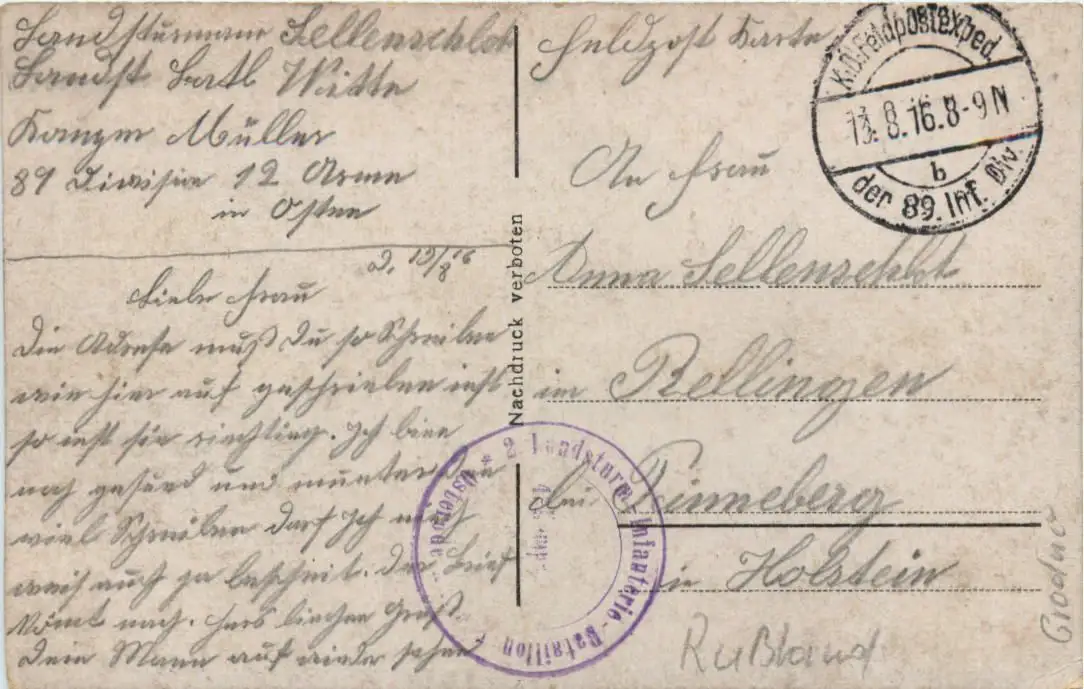 Landsturmann Sellenschlot
Landst Batl Witte
Kompn Müller
89 Division 12 Armee
in Osten
D. 13/8 16
Liebe Frau
Die Adresse muß Du so Schreiben
wie hier auf geschrieben ist
so ist sie richting. Ich bin
noch gesund und munter
viel Schreiben darf ich nich
weis auch ja bescheit. Der Brief
kömt nach. Herzlichen Gruß
Dein Mann auf wieder sehen
Nachdruck verboten
Feldpost Karte
An Frau
Anna Sellenschlot
in Rellingen
bei Pinneberg
in Holstein
Rußland
Grodno
K.D. Feldpostexped.
13.8.16.8-9N
b
der 89. Inf. Div.
* 2. Landsturm-Infanterie-Bataillon Osterode